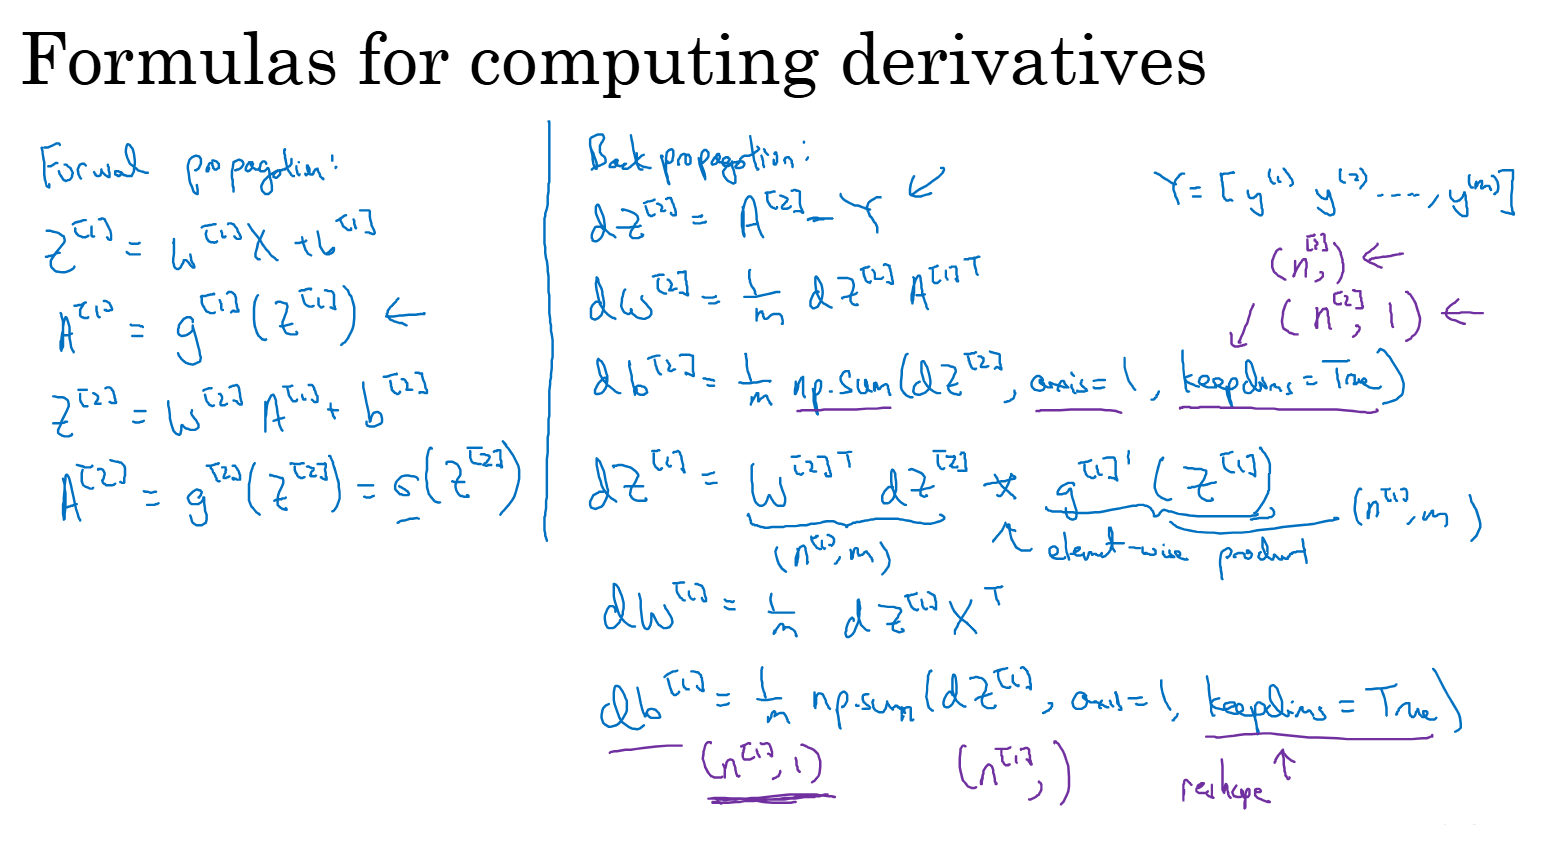 Formulas for computing derivatives
Forwal propagation:
Z^[1] = W^[1] X + b^[1]
A^[1] = g^[1](Z^[1]) ←
Z^[2] = W^[2] A^[1] + b^[2]
A^[2] = g^[2](Z^[2]) = σ(Z^[2])
Back propagation:
dZ^[2] = A^[2] - Y ↙
Y = [y^(1) y^(2) ...., y^(m)]
dW^[2] = 1/m dZ^[2] A^[1]T
(n^[2],) ←
↙ (n^[2], 1) ←
db^[2] = 1/m np.sum(dZ^[2], axis = 1, keepdims = True)
dZ^[1] = W^[2]T dZ^[2] * g^[1]'(Z^[1])
(n^[1], m) ↖ element-wise product (n^[1], m)
dW^[1] = 1/m dZ^[1] X^T
db^[1] = 1/m np.sum(dZ^[1], axis = 1, keepdims = True)
(n^[1], 1) (n^[1],) reshape ↑